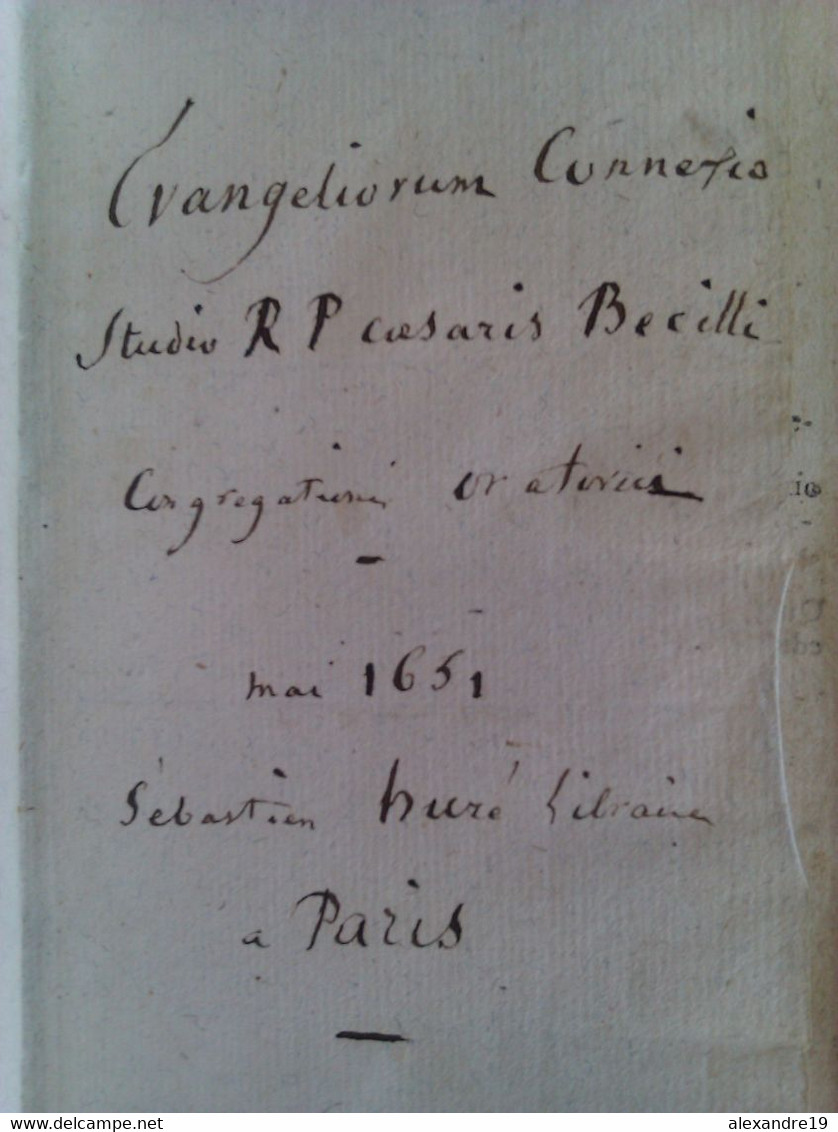 Evangeliorum Connexio
Studio R P cæsaris Becilli
Congregationis oratorii
-
mai 1651
Sébastien huré libraire
a Paris
—
www.delcampe.net alexandre19